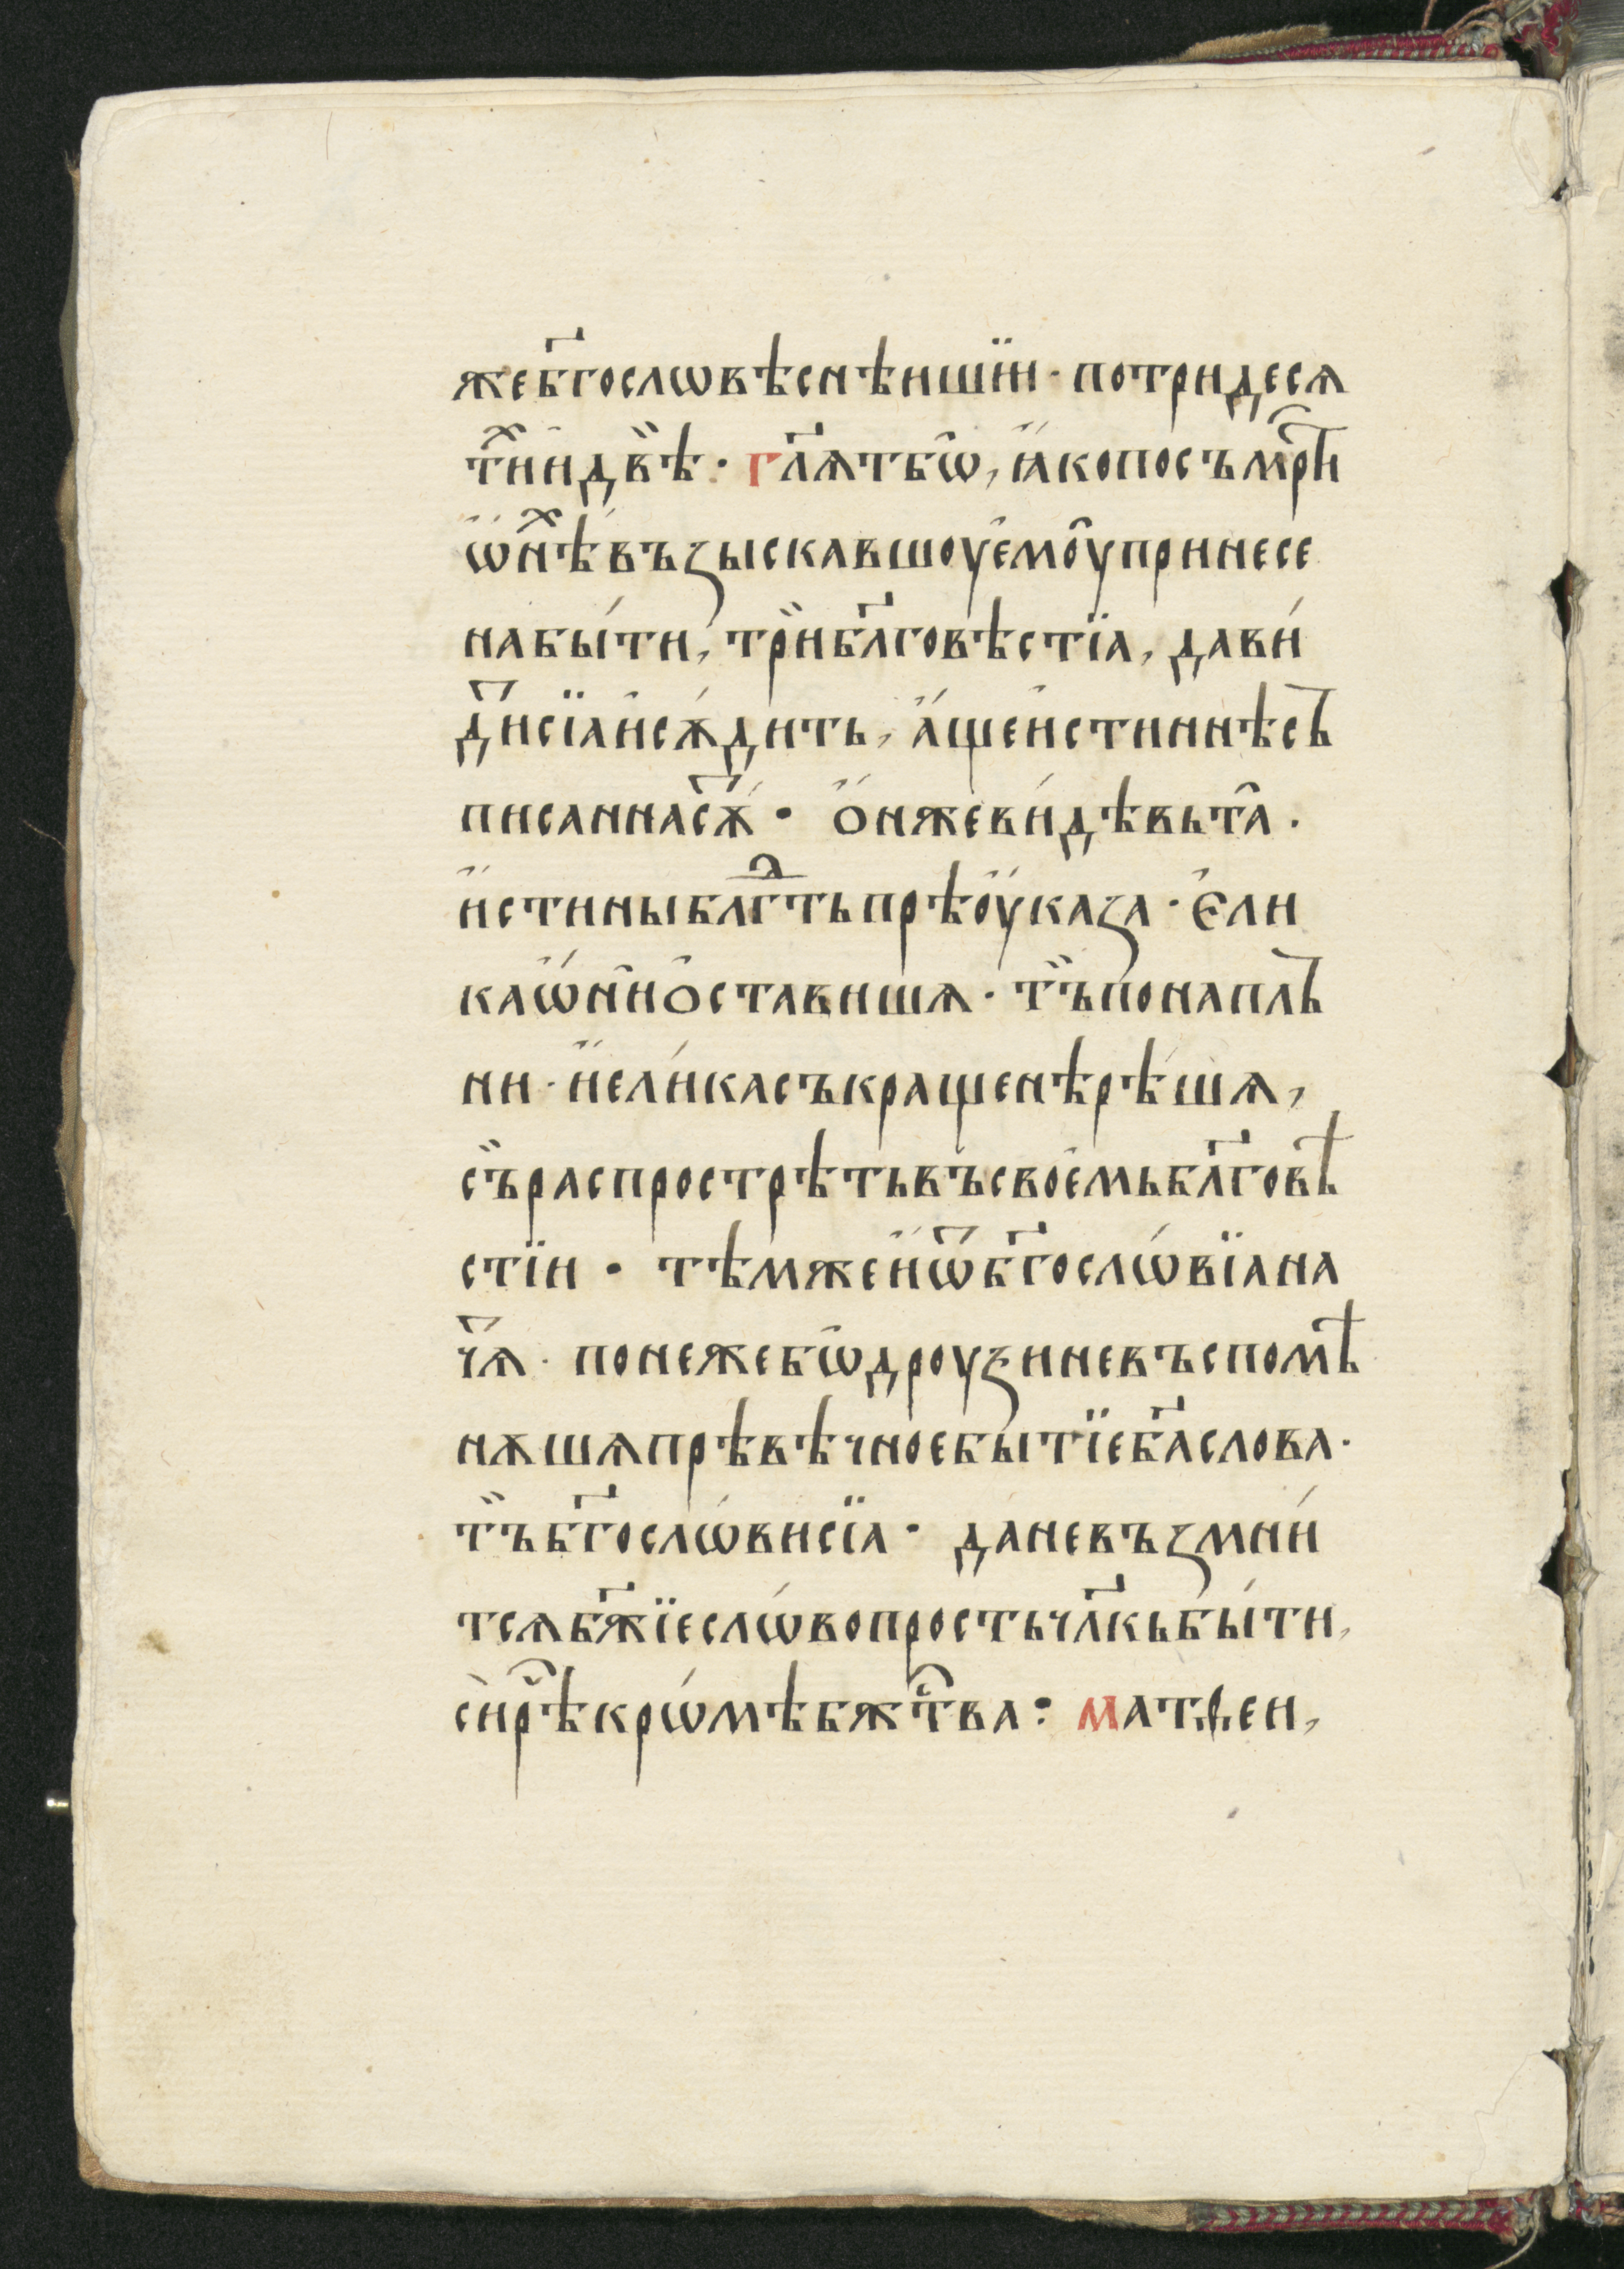 же бг҃ословѣснѣишїи · по три десѧ
тⷯи и двѣ · гл҃ѧт бѡ, ꙗко по съмрⷭ҇ти
ѡнⷯѣ възыскавшоу емоу принесе
на бы́ти, три бл҃говѣстїа, да ви́
дⷩ҇и сїа и сѫ́дить, а́ще истиннѣ съ
писанна сѫⷮ · ѻ́н же ви́дѣвь та̑ ·
истины блⷣгть прѣоука́за · Єли
ка ѡни ѻставишѧ · тъ́ понаплъ
ни · и ели́ка съкращенѣ рѣ́шѧ,
съ́ распрострѣть въ своемь бл҃говѣ
стїи · тѣм же и ѿ бг҃ослѡ́вїа на
чѧⷮ · понеже бѡ дроуѕи не въспомѣ
нѫшѧ прѣвѣчное бытїе бг҃а слова ·
тъ́ бг҃ослѡ́ви сїа · да не възмни́
тсѧ бж҃їе слѡ́во прость чл҃кь бы́ти,
си рⷱ҇ѣ крѡ́мѣ бжⷭ҇тва : Матѳеи,